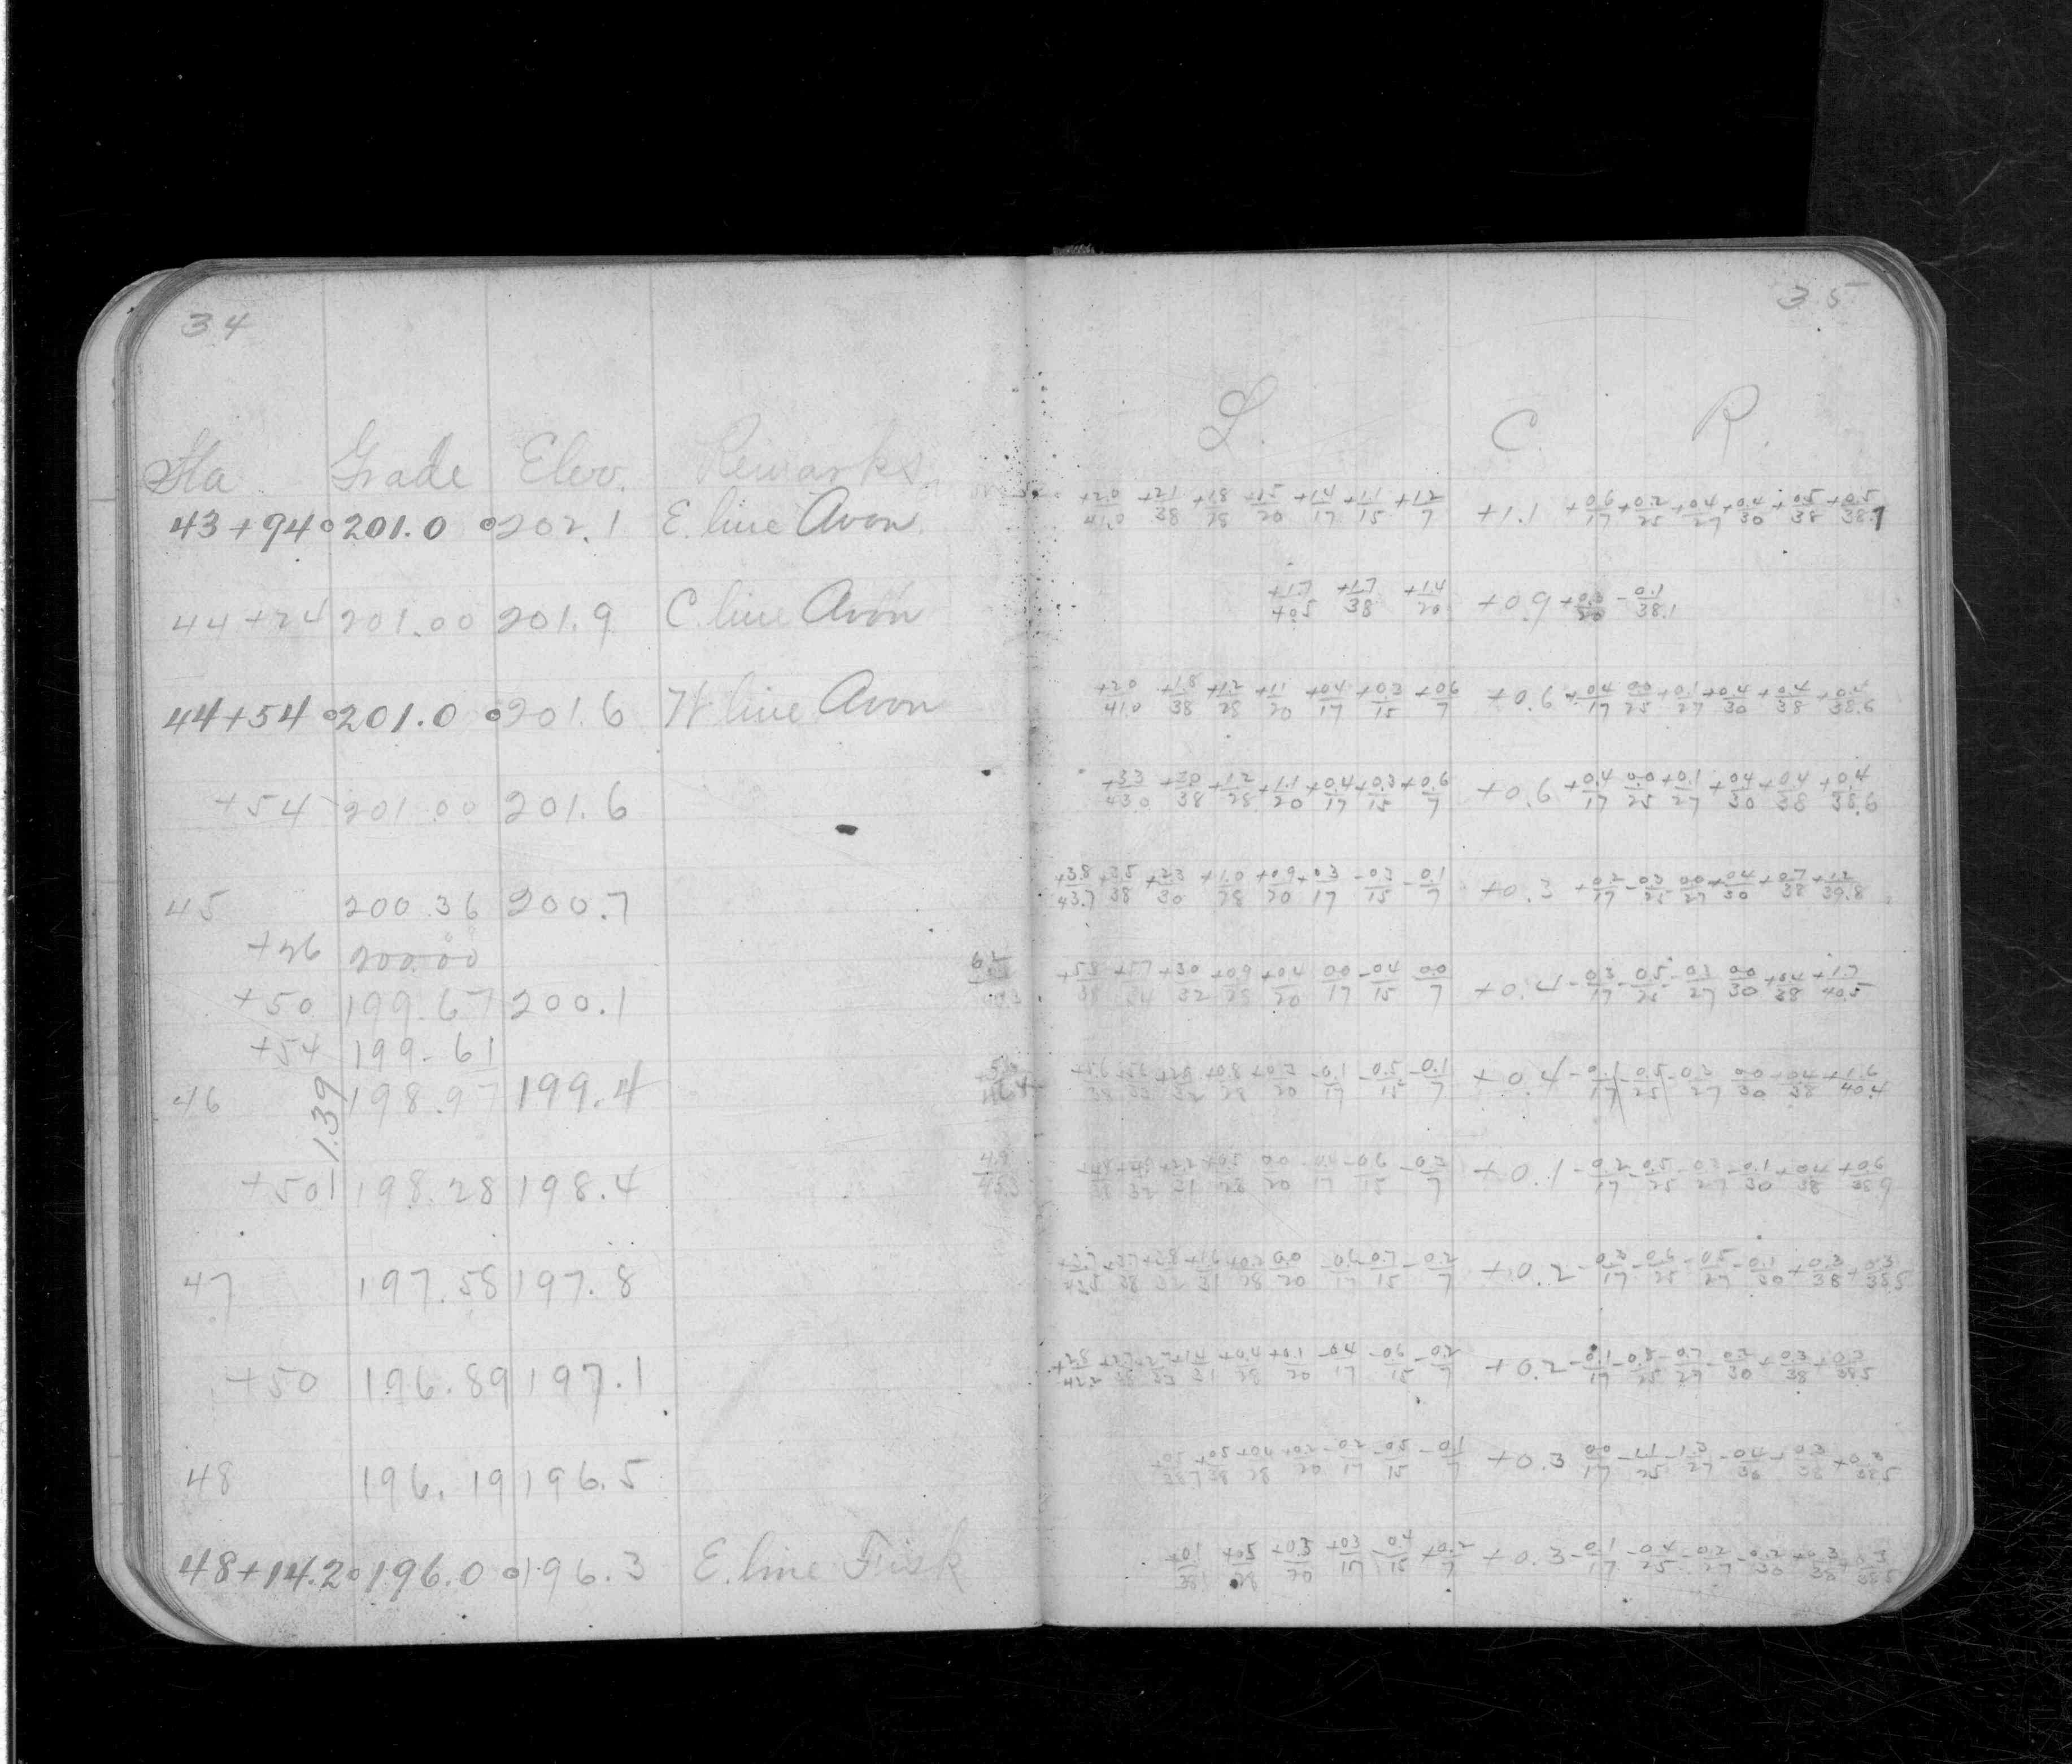 34
Sta Grade Elev. Remarks
43+94 201.0 202.1 E. line Avon
44+24 201.00 201.9 C. line Avon
44+54 201.0 201.6 W line Avon
+54 201.00 201.6
45 200.36 200.7
+26 200.00
+50 199.67 200.1
+54 199.61
46 198.97 199.4
1.39
+50 198.28 198.4
47 197.58 197.8
+50 196.89 197.1
48 196.19 196.5
48+14.2 196.0 196.3 E. line Fisk
35
L. C. R.
+2.0/41.0 +2.1/38 +1.8/28 +1.5/20 +1.4/17 +1.1/15 +1.2/7 +1.1 +0.6/17 +0.2/25 +0.4/27 +0.4/30 +0.5/38 +0.5/38.7
+1.7/40.5 +1.7/38 +1.4/20 +0.9 +0.0/20 -0.1/38.1
+2.0/41.0 +1.8/38 +1.2/28 +1.1/20 +0.4/17 +0.3/15 +0.6/7 +0.6 +0.4/17 0.0/25 +0.1/27 +0.4/30 +0.4/38 +0.4/38.6
+3.3/43.0 +3.0/38 +1.2/28 +1.1/20 +0.4/17 +0.3/15 +0.6/7 +0.6 +0.4/17 0.0/25 +0.1/27 +0.4/30 +0.4/38 +0.4/38.6
+3.8/43.7 +3.5/38 +2.3/30 +1.0/28 +0.9/20 +0.3/17 -0.3/15 -0.1/7 +0.3 +0.2/17 -0.3/25 -0.0/27 +0.4/30 +0.7/38 +1.2/39.8
+5.8/38 +5.7/34 +3.0/32 +0.9/28 +0.4/20 0.0/17 -0.4/15 0.0/7 +0.4 -0.3/17 -0.5/25 -0.3/27 0.0/30 +0.4/38 +1.7/40.5
+0.8/28 +0.3/20 -0.1/17 -0.5/15 -0.1/7 +0.4 -0.1/17 -0.5/25 -0.3/27 0.0/30 +0.4/38 +1.6/40.4
0.0/20 -0.6/15 -0.2/7 +0.1 -0.2/17 -0.5/25 -0.3/27 -0.1/30 +0.4/38 +0.6/38.9
0.0/20 -0.6/17 -0.7/15 -0.2/7 +0.2 -0.3/17 -0.6/25 -0.5/27 -0.1/30 +0.3/38 +0.3/38.5
+1.4/31 +0.4/28 +0.1/20 -0.4/17 -0.6/15 -0.2/7 +0.2 -0.1/17 -0.8/25 -0.7/27 -0.2/30 +0.3/38 +0.3/38.5
+0.5/38 +0.4/28 +0.2/20 -0.2/17 -0.5/15 -0.1/7 +0.3 0.0/17 -1.1/25 -1.3/27 -0.4/30 +0.3/38 +0.3/38.5
+0.1/38.1 +0.5/28 +0.3/20 +0.3/17 -0.4/15 +0.2/7 +0.3 -0.1/17 -0.4/25 -0.2/27 -0.2/30 +0.3/38 +0.3/38.5